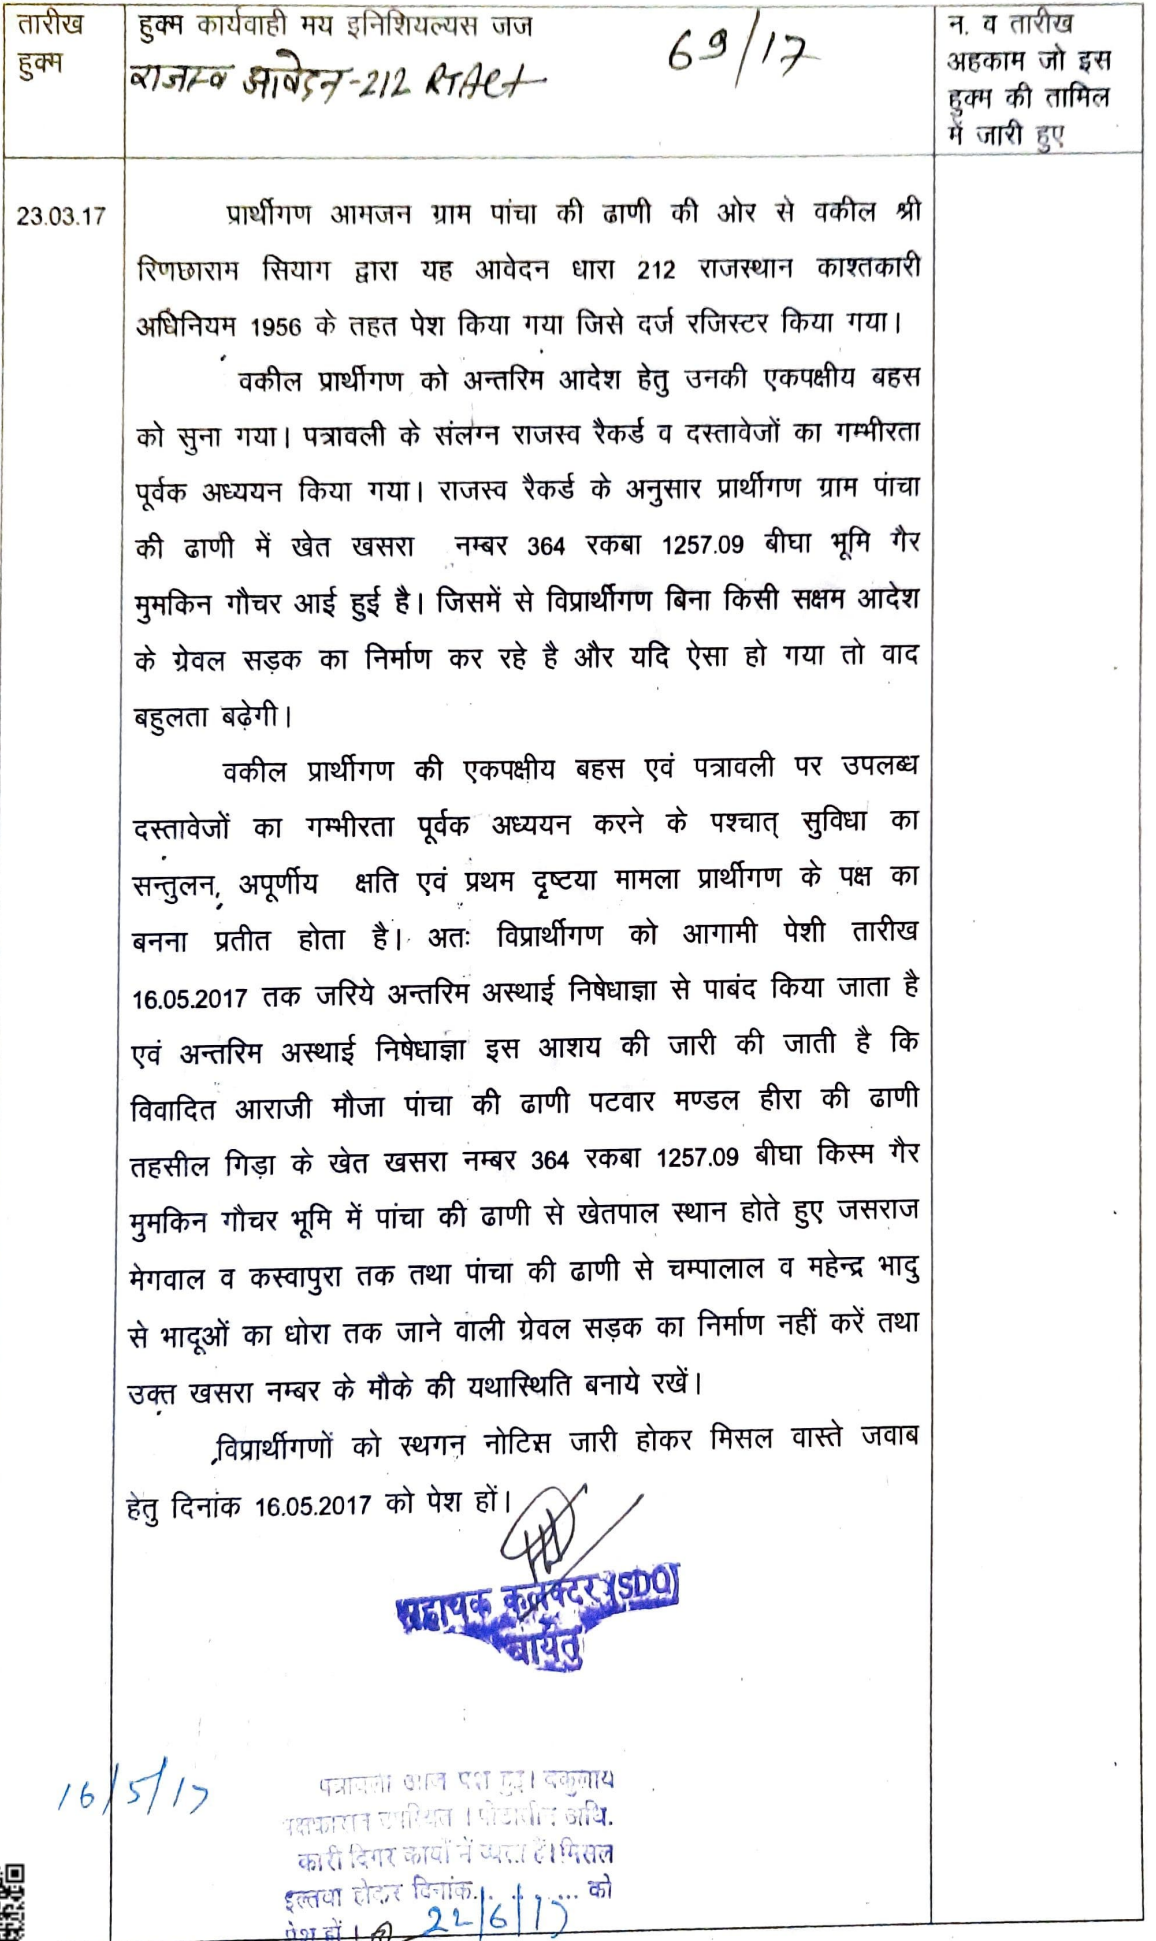 तारीख
हुक्म
हुक्म कार्यवाही मय इनिशियल्यस जज
राजस्व आवेदन-212 RTAct
69/17
न. व तारीख
अहकाम जो इस
हुक्म की तामिल
में जारी हुए
23.03.17
प्रार्थीगण आमजन ग्राम पांचा की ढाणी की ओर से वकील श्री
रिणछाराम सियाग द्वारा यह आवेदन धारा 212 राजस्थान काश्तकारी
अधिनियम 1956 के तहत पेश किया गया जिसे दर्ज रजिस्टर किया गया।
वकील प्रार्थीगण को अन्तरिम आदेश हेतु उनकी एकपक्षीय बहस
को सुना गया। पत्रावली के संलग्न राजस्व रैकर्ड व दस्तावेजों का गम्भीरता
पूर्वक अध्ययन किया गया। राजस्व रैकर्ड के अनुसार प्रार्थीगण ग्राम पांचा
की ढाणी में खेत खसरा नम्बर 364 रकबा 1257.09 बीघा भूमि गैर
मुमकिन गौचर आई हुई है। जिसमें से विप्रार्थीगण बिना किसी सक्षम आदेश
के ग्रेवल सड़क का निर्माण कर रहे है और यदि ऐसा हो गया तो वाद
बहुलता बढ़ेगी।
वकील प्रार्थीगण की एकपक्षीय बहस एवं पत्रावली पर उपलब्ध
दस्तावेजों का गम्भीरता पूर्वक अध्ययन करने के पश्चात् सुविधा का
सन्तुलन, अपूर्णीय क्षति एवं प्रथम दृष्टया मामला प्रार्थीगण के पक्ष का
बनना प्रतीत होता है। अतः विप्रार्थीगण को आगामी पेशी तारीख
16.05.2017 तक जरिये अन्तरिम अस्थाई निषेधाज्ञा से पाबंद किया जाता है
एवं अन्तरिम अस्थाई निषेधाज्ञा इस आशय की जारी की जाती है कि
विवादित आराजी मौजा पांचा की ढाणी पटवार मण्डल हीरा की ढाणी
तहसील गिड़ा के खेत खसरा नम्बर 364 रकबा 1257.09 बीघा किस्म गैर
मुमकिन गौचर भूमि में पांचा की ढाणी से खेतपाल स्थान होते हुए जसराज
मेगवाल व कस्वापुरा तक तथा पांचा की ढाणी से चम्पालाल व महेन्द्र भादु
से भादूओं का धोरा तक जाने वाली ग्रेवल सड़क का निर्माण नहीं करें तथा
उक्त खसरा नम्बर के मौके की यथास्थिति बनाये रखें।
विप्रार्थीगणों को स्थगन नोटिस जारी होकर मिसल वास्ते जवाब
हेतु दिनांक 16.05.2017 को पेश हों।
सहायक कलक्टर (SDO)
बायतु
16/5/17
पत्रावली आज पेश हुई। वकुलाय
पक्षकारान उपस्थित। पीठासीन अधि.
कारी दिगर कार्यो में व्यस्त है। मिसल
इल्तवा होकर दिनांक......... को
पेश हों।
22/6/17